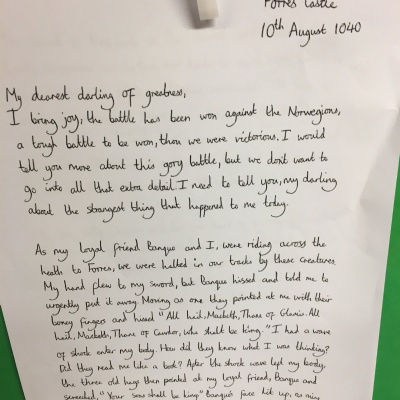 Forres Castle
10th August 1040
My dearest darling of greatness,
I bring joy, the battle has been won against the Norwegians,
a tough battle to be won, thou we were victorious. I would
tell you more about this gory battle, but we dont want to
go into all that extra detail. I need to tell you, my darling
about the strangest thing that happened to me today.
As my loyal friend Banquo and I, were riding across the
heath to Forres, we were halted in our tracks by these creatures.
My hand flew to my sword, but Banquo hissed and told me to
urgently put it away. Moving as one they pointed at me with their
boney fingers and hissed "All hail, Macbeth, Thane of Glamis. All
hail, Macbeth, Thane of Cawdor, who shalt be king." I had a wave
of shock enter my body. How did they know what I was thinking?
Did they read me like a book? After the shock wave left my body,
the three old hags then pointed at my loyal friend, Banquo and
screeched, "Your sons shall be king" Banquo's face lit up, as mine